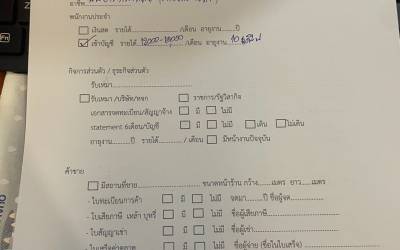 อาชีพ
พนักงานประจำ
เงินสด รายได้............../เดือน อายุงาน......ปี
เข้าบัญชี รายได้ 12000-18000 /เดือน อายุงาน 10 ปี
กิจการส่วนตัว / ธุรกิจส่วนตัว
รับเหมา..............................
รับเหมา /บริษัท/หจก ราชการ/รัฐวิสาหกิจ
เอกสารจดทะเบียน/สัญญาจ้าง มี ไม่มี
statement 6เดือน/บัญชี มี ไม่มี เดิน ไม่เดิน
อายุงาน.........ปี รายได้............. / เดือน มีหน้างานปัจจุบัน
ค้าขาย
มีสถานที่ขาย.............................. ขนาดหน้าร้าน กว้าง.......เมตร ยาว.......เมตร
- ใบทะเบียนการค้า มี ไม่มี จดมา.......ปี ชื่อผู้จด.............
- ใบเสียภาษี เหล้า บุหรี่ มี ไม่มี ชื่อผู้เสียภาษี....................
- ใบสัญญาเช่า มี ไม่มี ชื่อผู้เช่า..............................
มี ไม่มี ชื่อผู้จ่าย (ชื่อในใบเสร็จ)